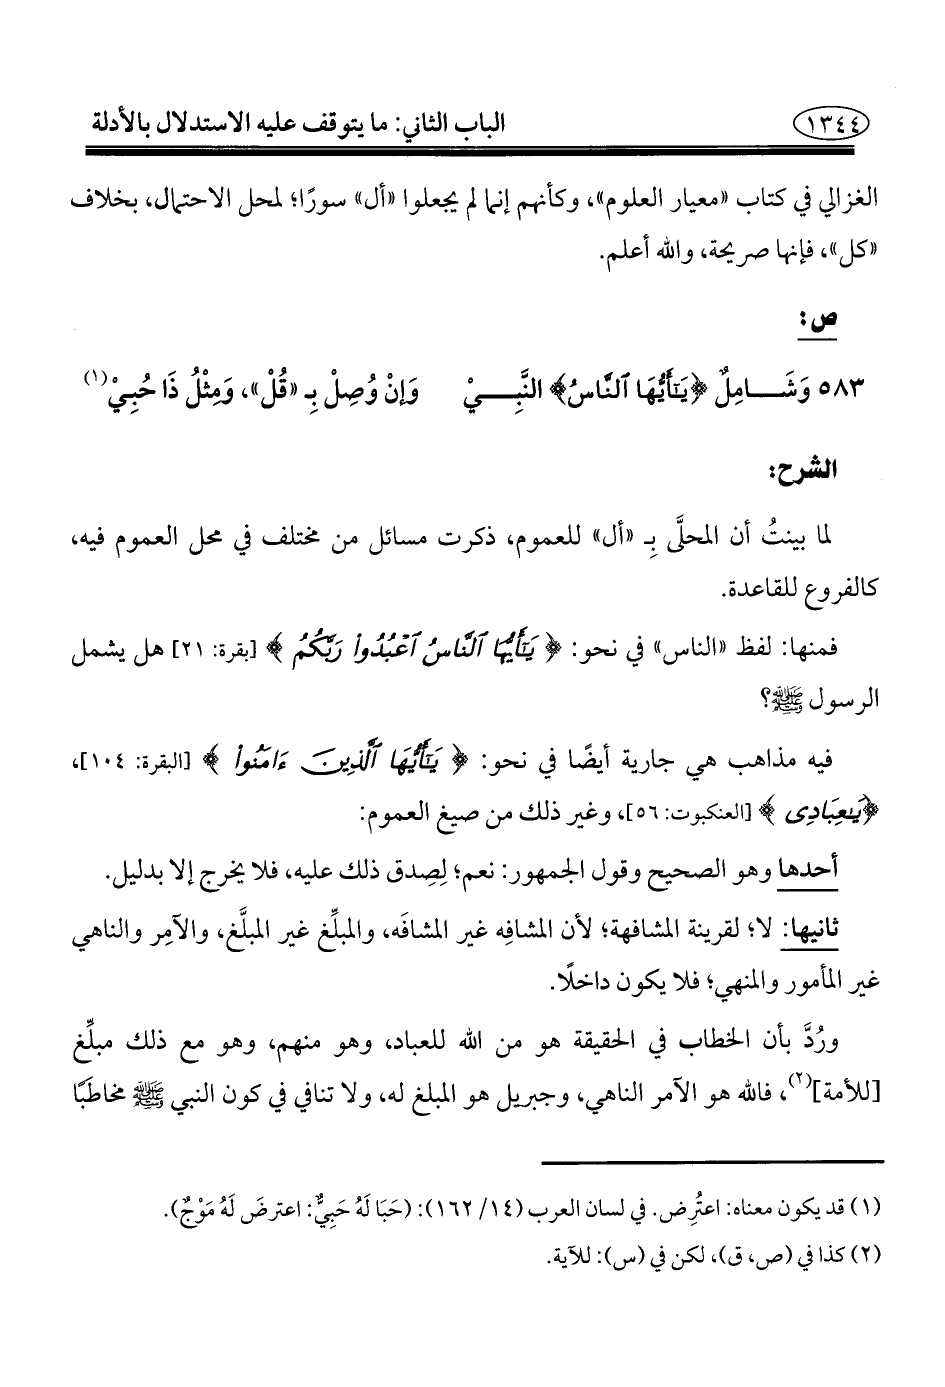 ١٣٤٤ الباب الثاني: ما يتوقف عليه الاستدلال بالأدلة
الغزالي في كتاب «معيار العلوم»، وكأنهم إنما لم يجعلوا «أل» سورًا؛ لمحل الاحتمال، بخلاف
«كل»، فإنها صريحة، والله أعلم.
ص:
٥٨٣ وَشَـــامِلٌ ﴿يَٰٓأَيُّهَا ٱلنَّاسُ﴾ النَّبِـــيْ وَإِنْ وُصِلْ بِـ «قُلْ»، وَمِثْلُ ذَا حُبِيْ(١)
الشرح:
لما بينتُ أن المحلَّى بِـ «أل» للعموم، ذكرت مسائل من مختلف في محل العموم فيه،
كالفروع للقاعدة.
فمنها: لفظ «الناس» في نحو: ﴿ يَٰٓأَيُّهَا ٱلنَّاسُ ٱعْبُدُوا۟ رَبَّكُمُ ﴾ [بقرة: ٢١] هل يشمل
الرسول ﷺ؟
فيه مذاهب هي جارية أيضًا في نحو: ﴿ يَٰٓأَيُّهَا ٱلَّذِينَ ءَامَنُوا۟ ﴾ [البقرة: ١٠٤]،
﴿يَٰعِبَادِىَ ﴾ [العنكبوت: ٥٦]، وغير ذلك من صيغ العموم:
أحدها وهو الصحيح وقول الجمهور: نعم؛ لِصِدق ذلك عليه، فلا يخرج إلا بدليل.
ثانيها: لا؛ لقرينة المشافهة؛ لأن المشافِه غير المشافَه، والمبلِّغ غير المبلَّغ، والآمِر والناهي
غير المأمور والمنهي؛ فلا يكون داخلًا.
ورُدَّ بأن الخطاب في الحقيقة هو من الله للعباد، وهو منهم، وهو مع ذلك مبلِّغ
[للأمة](٢)، فالله هو الآمر الناهي، وجبريل هو المبلغ له، ولا تنافي في كون النبي ﷺ مخاطَبًا
(١) قد يكون معناه: اعتُرِض. في لسان العرب (١٤/ ١٦٢): (حَبَا لَهُ حَبِيٌّ: اعترضَ لَهُ مَوْجٌ).
(٢) كذا في (ص، ق)، لكن في (س): للآية.